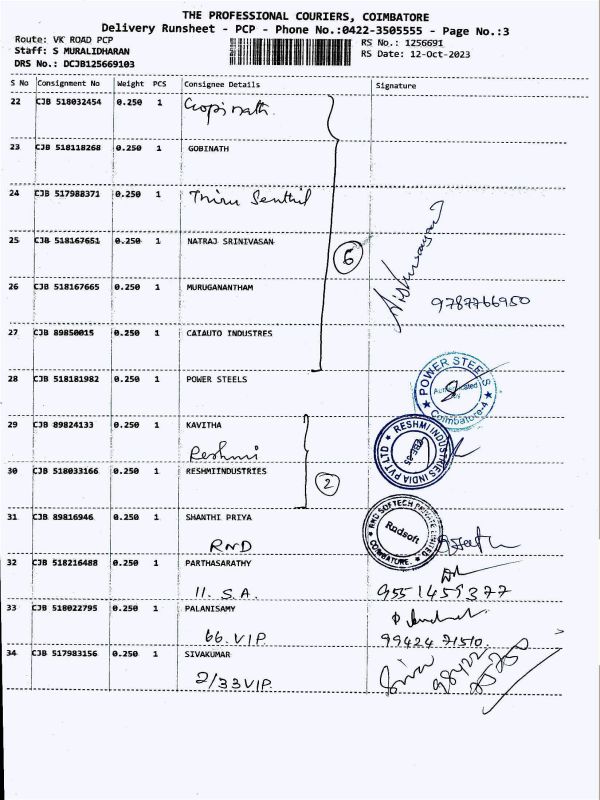 THE PROFESSIONAL COURIERS, COIMBATORE
Delivery Runsheet - PCP - Phone No.:0422-3505555 - Page No.:3
Route: VK ROAD PCP
RS No.: 1256691
Staff: S MURALIDHARAN
RS Date: 12-Oct-2023
DRS No.: DCJB125669103
S No Consignment No Weight PCS Consignee Details Signature
22 CJB 518032454 0.250 1 Gopinath
23 CJB 518118268 0.250 1 GOBINATH
24 CJB 517988371 0.250 1 Thiru Senthil
25 CJB 518167651 0.250 1 NATRAJ SRINIVASAN
26 CJB 518167665 0.250 1 MURUGANANTHAM
6
9787766950
27 CJB 89850015 0.250 1 CAIAUTO INDUSTRES
28 CJB 518181982 0.250 1 POWER STEELS
POWER STEELS
Coimbatore-4
29 CJB 89824133 0.250 1 KAVITHA
Reshmi
RESHMI INDUSTRIES INDIA PVT LTD
30 CJB 518033166 0.250 1 RESHMIINDUSTRIES
2
31 CJB 89816946 0.250 1 SHANTHI PRIYA
RND
RND SOFTECH PRIVATE LIMITED
Rndsoft
COIMBATORE.
32 CJB 518216488 0.250 1 PARTHASARATHY
11. S.A.
9551459377
33 CJB 518022795 0.250 1 PALANISAMY
66. VIP
99424 71510
34 CJB 517983156 0.250 1 SIVAKUMAR
2/33 VIP.